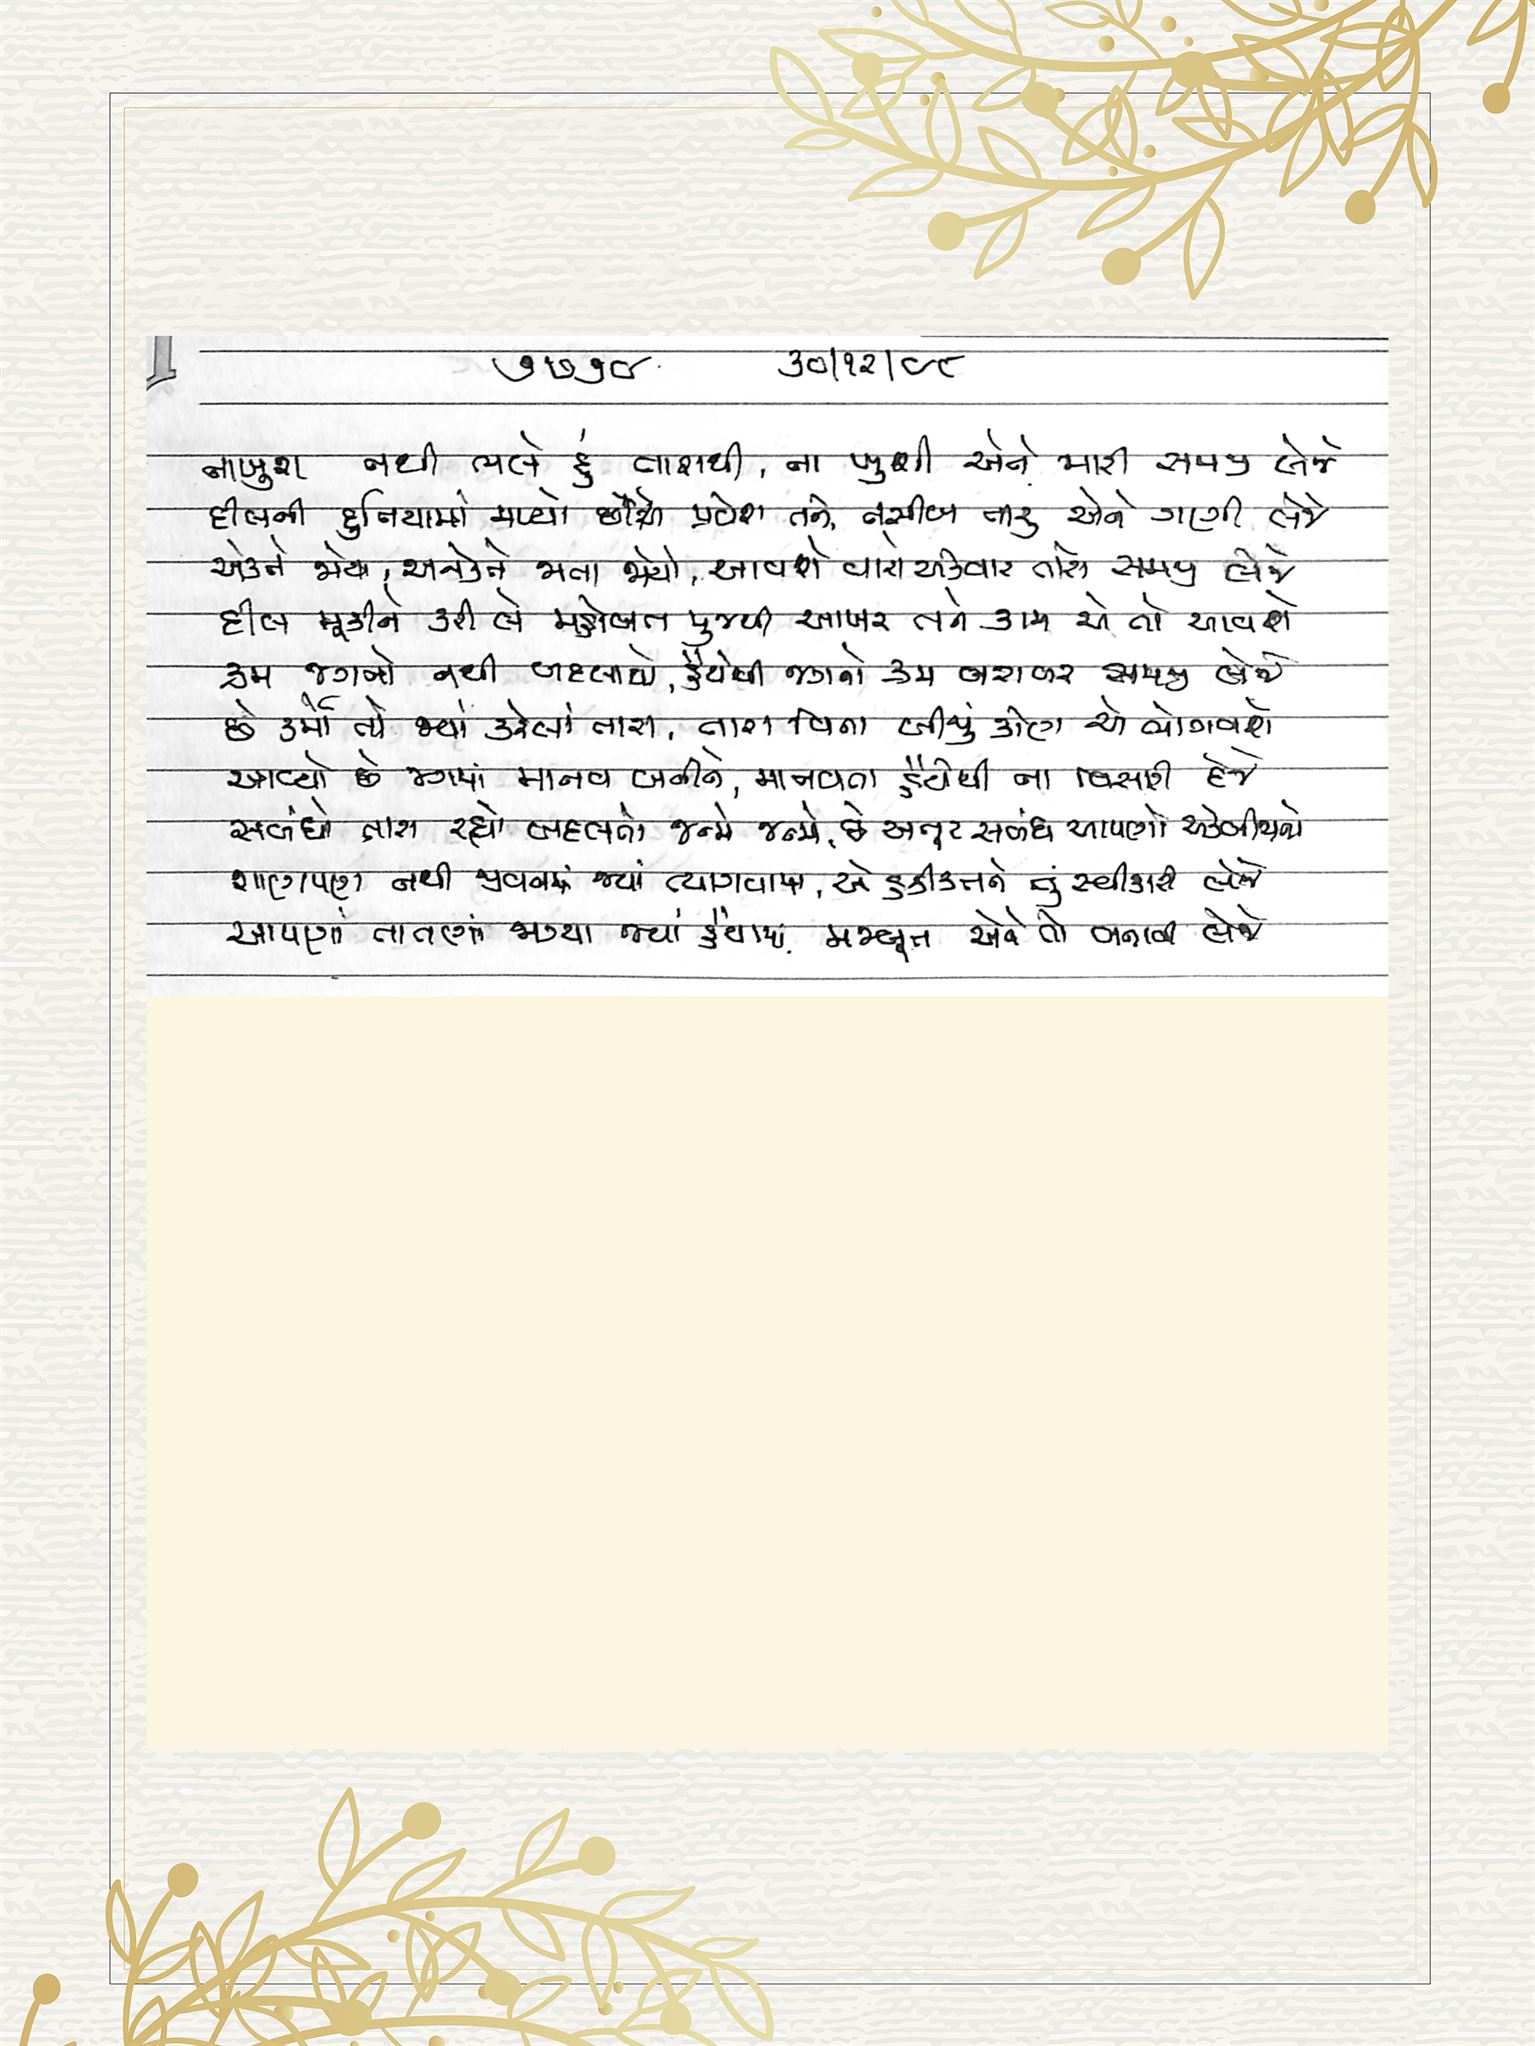 ૭૭૧૪ ૩૦/૧૨/૯૮
નાખુશ નથી ભલે હું તારાથી, ના ખુશી એને મારી સમજી લેજે
દીલની દુનિયામાં મળ્યો પ્રવેશ તને, નસીબ તારુ એને ગણી લેજે
એકને જોયા, અનેકને જાતા જોયો, આવશે વારો એકવાર તારો સમજી લેજે
દીલ મૂકીને કરી લે મહોબત પ્રભુથી આખર તને કામ એ તો આવશે
ક્રમ જગનો નથી બદલાયો, હૈયેથી જગનો ક્રમ બરાબર સમજી લેજે
છે કર્મો તો જ્યાં કરેલાં તારા, તારા વિના બીજું કોણ એ ભોગવશે
આવ્યો છે જગમાં માનવ બનીને, માનવતા હૈયેથી ના વિસારી દેજે
સબંધો તારા રહ્યો બદલતો જન્મે જન્મે, છે અતૂટ સબંધ આપણો
શાણપણ નથી જીવનમાં જ્યાં ત્યાગવામાં, એ હકીકત્તને તું સ્વીકારી લેજે
આપણાં તાતણાં જાગ્યા જ્યાં હૈયામાં, મજબૂત એને તો બનાવી લેજે